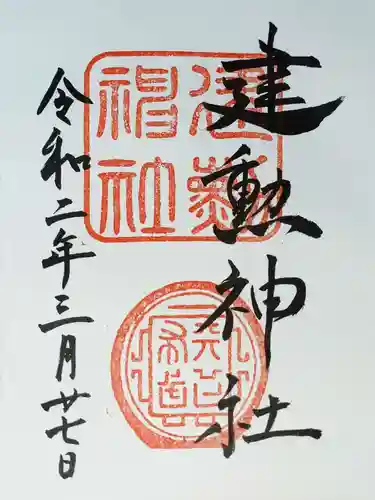 建勲神社
令和二年三月廿七日
建勲
神社